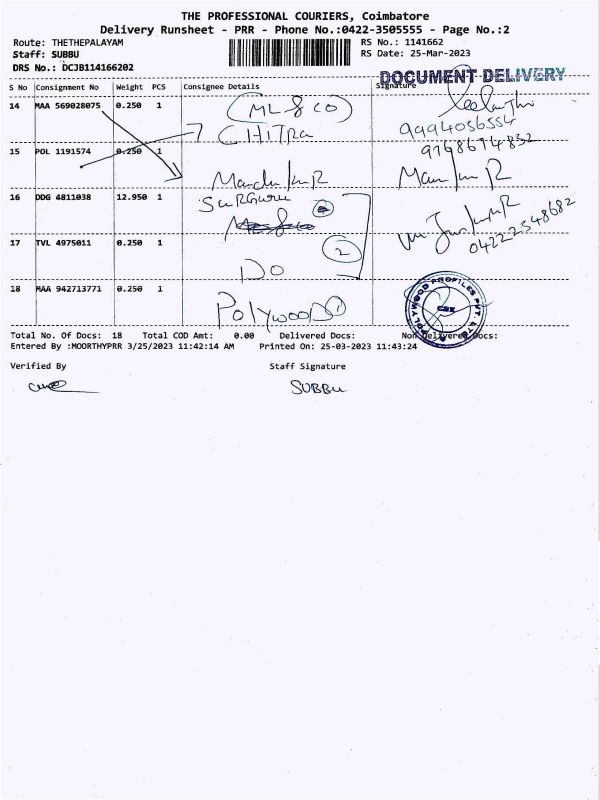 THE PROFESSIONAL COURIERS, Coimbatore
Delivery Runsheet - PRR - Phone No.:0422-3505555 - Page No.:2
Route: THETHEPALAYAM RS No.: 1141662
Staff: SUBBU RS Date: 25-Mar-2023
DRS No.: DCJB114166202
DOCUMENT DELIVERY
S No Consignment No Weight PCS Consignee Details Signature
14 MAA 569028075 0.250 1 (ML & CO)
CHITRa 9994056554
15 POL 1191574 0.250 1 9768694832
16 DDG 4811038 12.950 1 SURGURU
04222548682
17 TVL 4975011 0.250 1 2
DO
18 MAA 942713771 0.250 1 POLYWOOD 1
POLYWOOD PROFILES PVT. LTD
CBE
Total No. Of Docs: 18 Total COD Amt: 0.00 Delivered Docs: Non Delivered Docs:
Entered By :MOORTHYPRR 3/25/2023 11:42:14 AM Printed On: 25-03-2023 11:43:24
Verified By Staff Signature
SUBBU